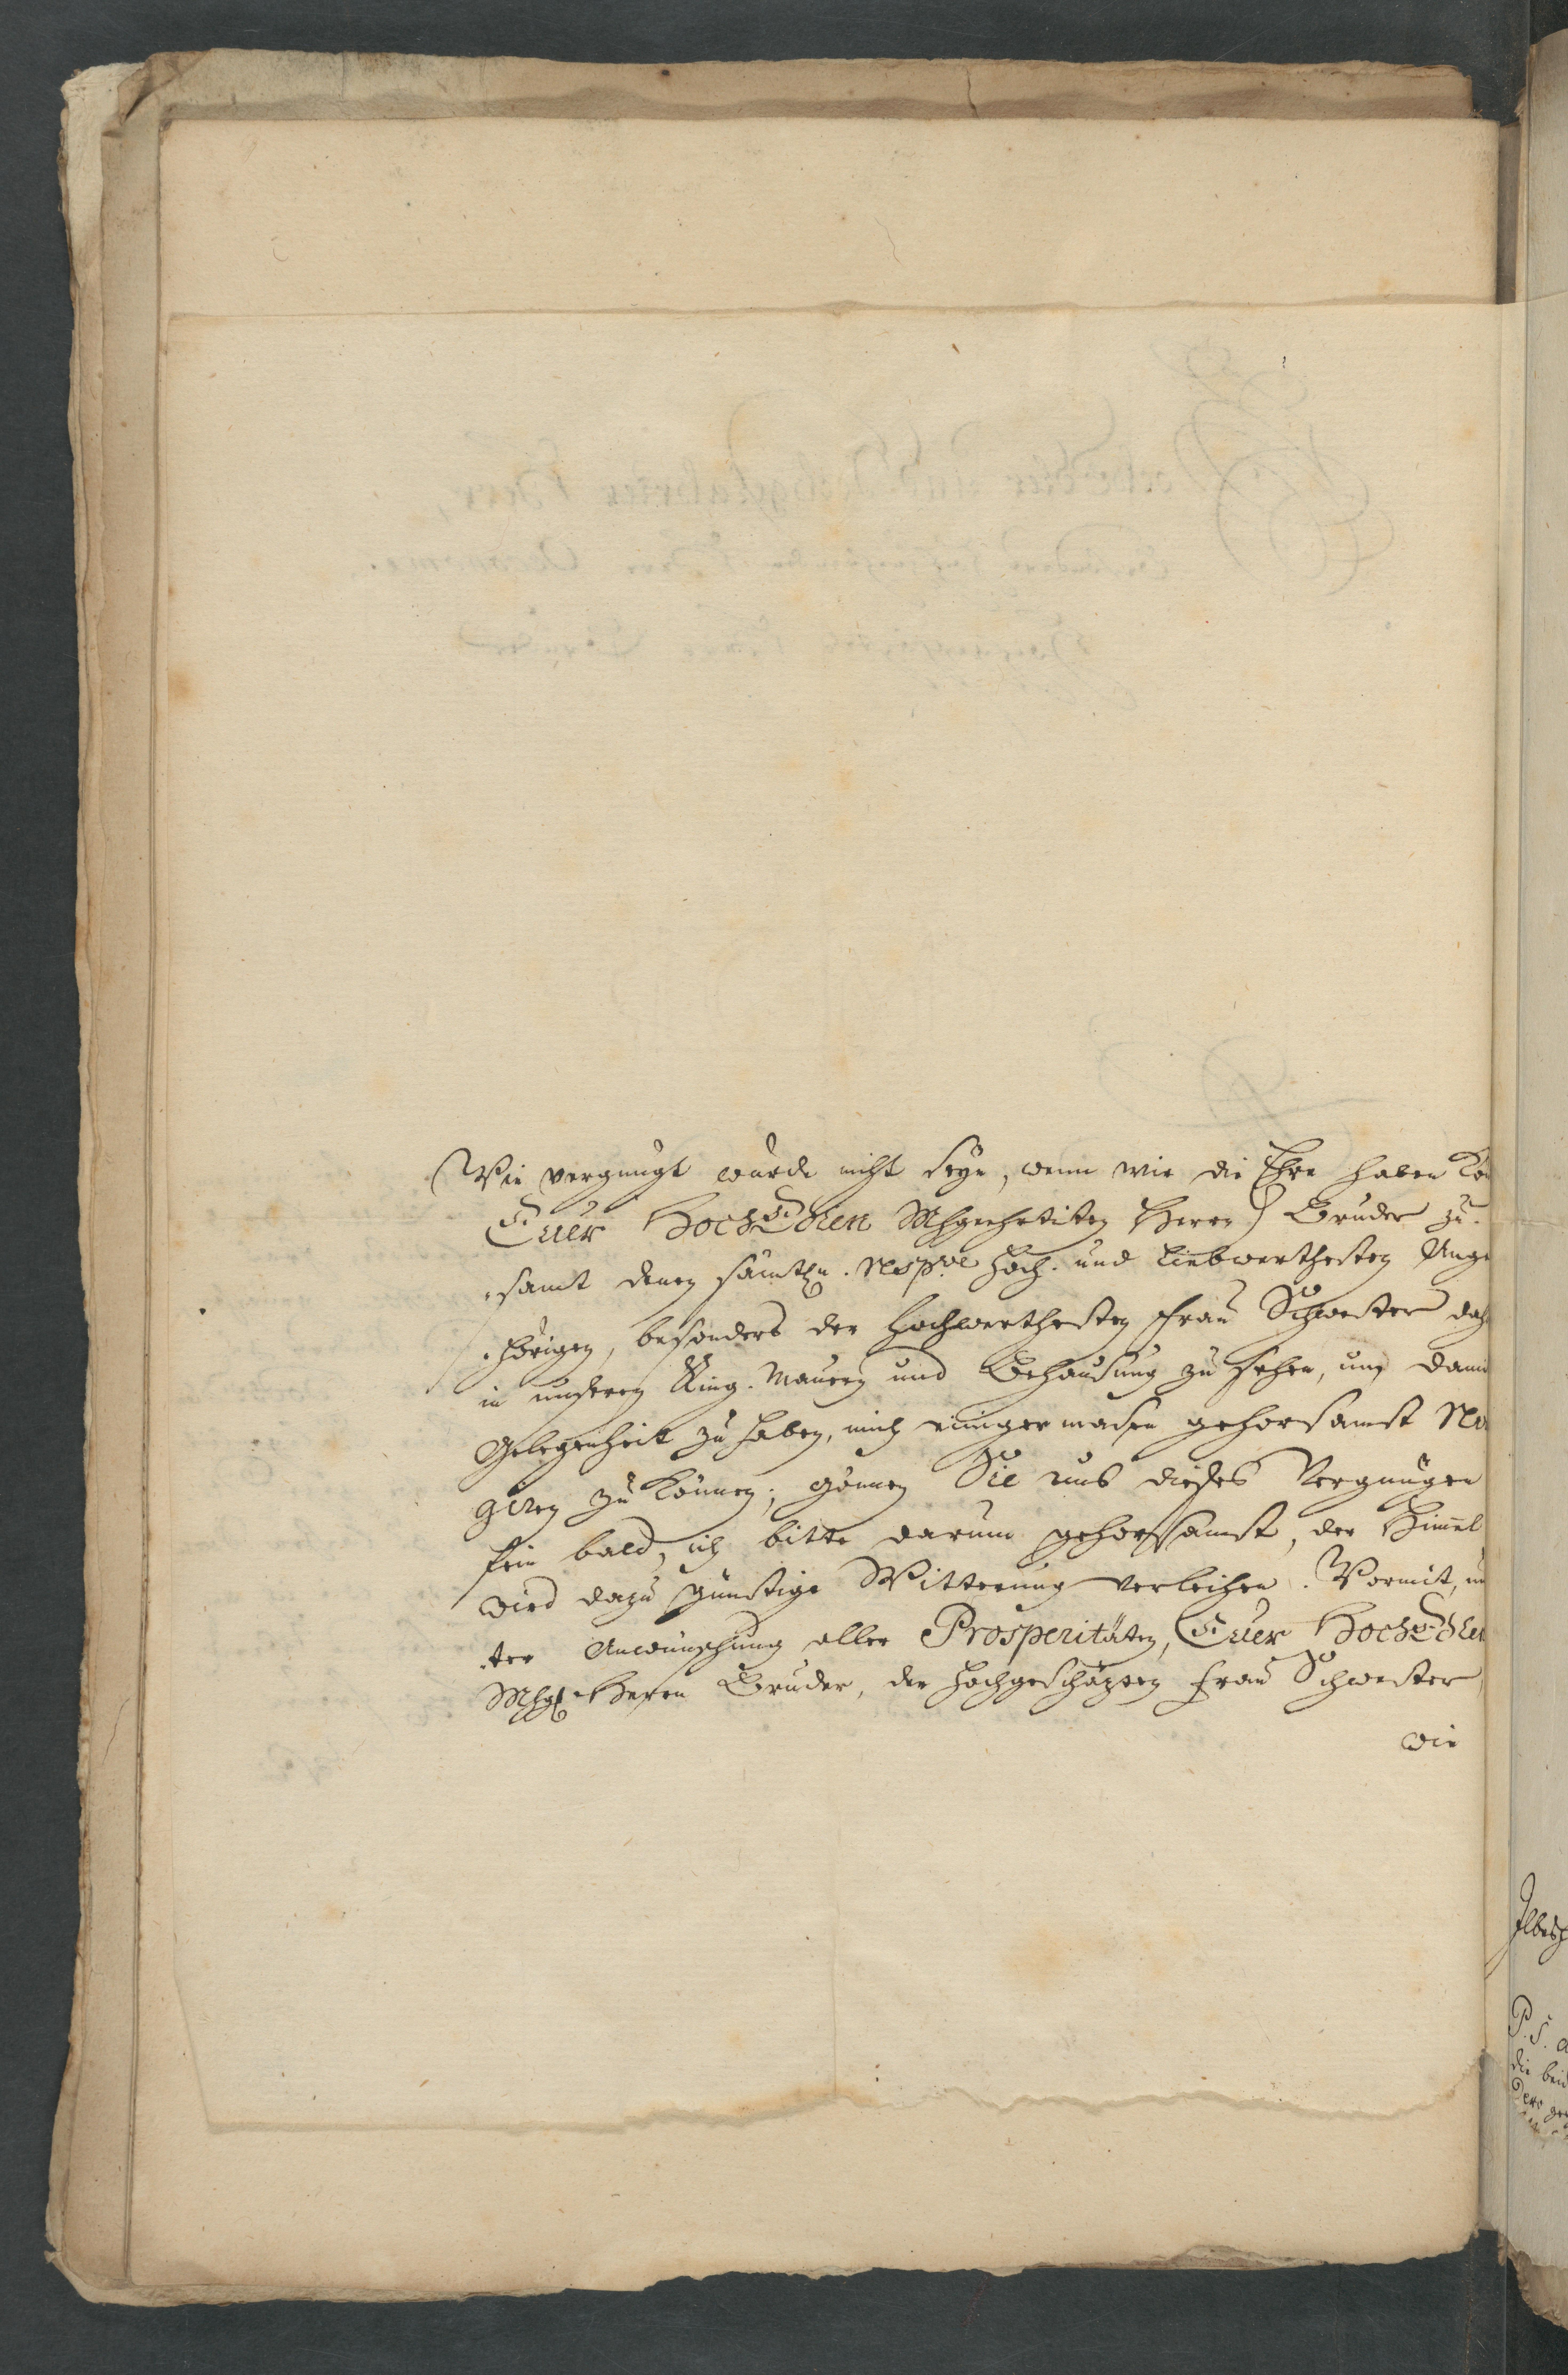 Wie vergnügt würde nicht seyn, wenn wir die Ehre haben kön
Euer HochEdlen Mhgeehrtesten Herrn Bruder zu-
-samt denen sämtln. respve hoch- und liebwerthesten Ange
-hörigen, besonders der hochwerthesten Frau Schwester dah
in unseren Ring-Mauern und Behausung zu sehen, um dami
Gelegenheit zu haben, mich einigermasen gehorsamst re
giren zu können; gönnen Sie uns dieses Vergnügen
fein bald, ich bitte darum gehorsamst, der Himel
wird dazu günstige Witterung verleihen. Vormit, un
-ter Anwünschung aller Prosperitäten, Euer HochEdlen
Mhgl Herrn Bruder, der hochgeschäzten Frau Schwester
wie
P. S.
die